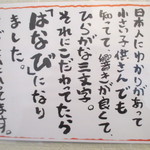 日本人にわかりがあって
小さい子供さんでも
知ってて、響きが良くて、
ひらがな三文字。
それにこだわってたら
「はなび」になり
ました。